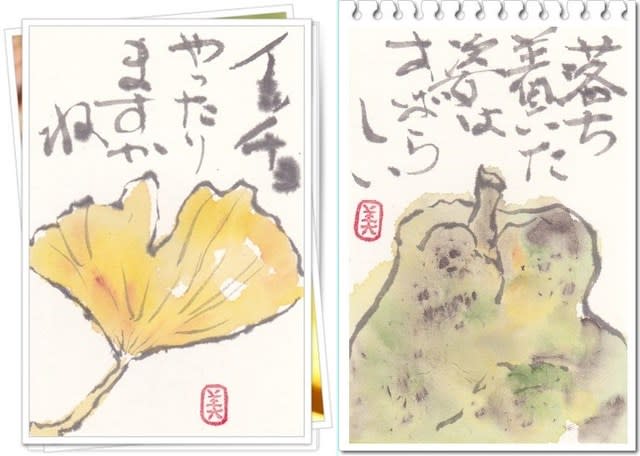 イッチョ
やったり
ますか
ね
落ち
着いた
姿は
すばら
しい